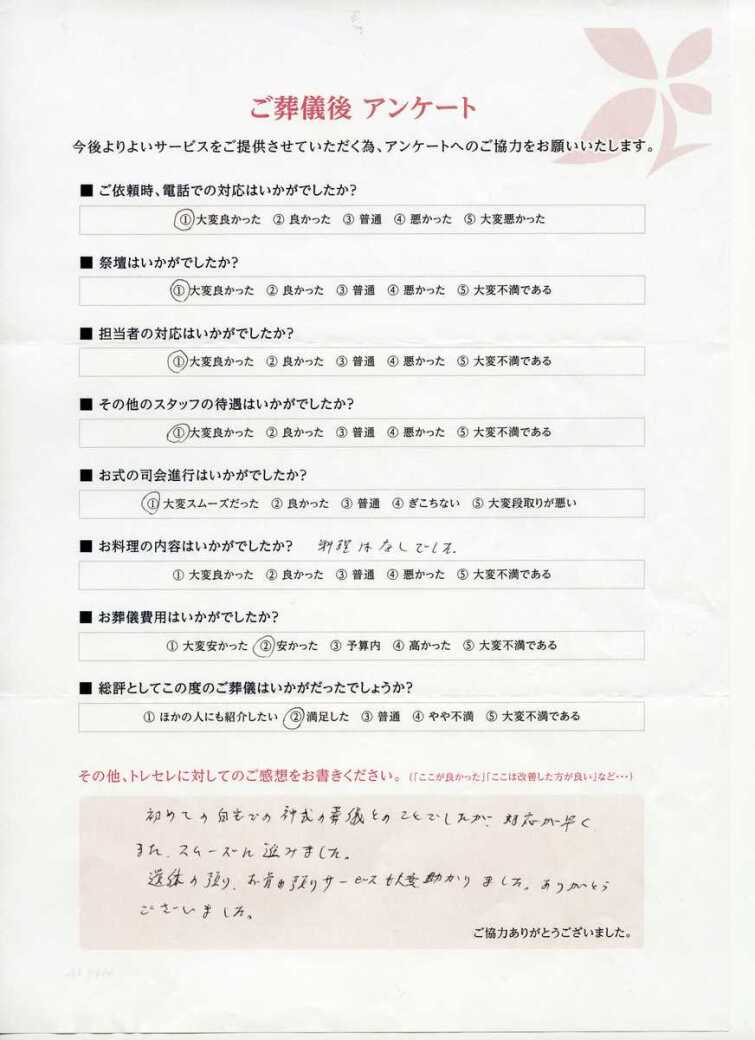 ご葬儀後 アンケート
今後よりよいサービスをご提供させていただく為、アンケートへのご協力をお願いいたします。
■ ご依頼時、電話での対応はいかがでしたか?
① 大変良かった ② 良かった ③ 普通 ④ 悪かった ⑤ 大変悪かった
■ 祭壇はいかがでしたか?
① 大変良かった ② 良かった ③ 普通 ④ 悪かった ⑤ 大変不満である
■ 担当者の対応はいかがでしたか?
① 大変良かった ② 良かった ③ 普通 ④ 悪かった ⑤ 大変不満である
■ その他のスタッフの待遇はいかがでしたか?
① 大変良かった ② 良かった ③ 普通 ④ 悪かった ⑤ 大変不満である
■ お式の司会進行はいかがでしたか?
① 大変スムーズだった ② 良かった ③ 普通 ④ ぎこちない ⑤ 大変段取りが悪い
■ お料理の内容はいかがでしたか? 料理はなしでした。
① 大変良かった ② 良かった ③ 普通 ④ 悪かった ⑤ 大変不満である
■ お葬儀費用はいかがでしたか?
① 大変安かった ② 安かった ③ 予算内 ④ 高かった ⑤ 大変不満である
■ 総評としてこの度のご葬儀はいかがだったでしょうか?
① ほかの人にも紹介したい ② 満足した ③ 普通 ④ やや不満 ⑤ 大変不満である
その他、トレセレに対してのご感想をお書きください。(「ここが良かった」「ここは改善した方が良い」など…)
初めての自宅での神式の葬儀とのことでしたが、対応が早く
また、スムーズに進みました。
サービスも大変助かりました。ありがとう
ございました。
ご協力ありがとうございました。